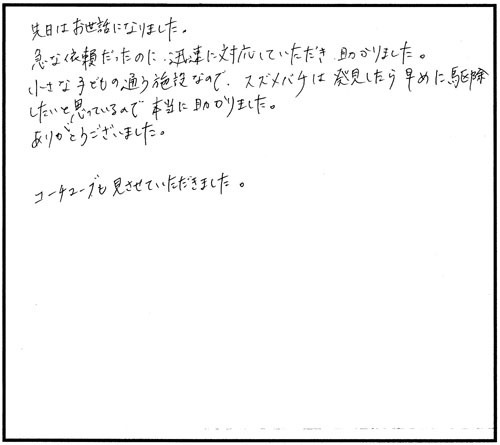 先日はお世話になりました。
急な依頼だったのに、迅速に対応していただき助かりました。
小さな子どもの通う施設なので、スズメバチは発見したら早めに駆除
したいと思っているので本当に助かりました。
ありがとうございました。
ユーチューブも見させていただきました。